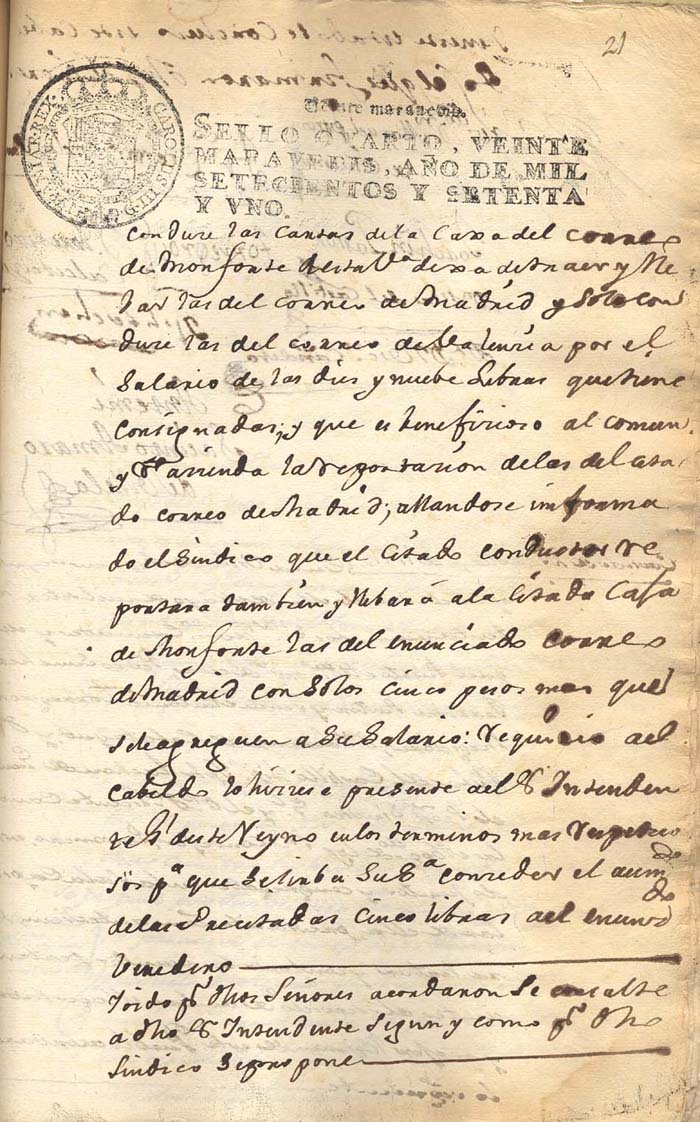 21
CAROLUS III D G HISPANIAR REX
Veinte maravedis.
SELLO QUARTO, VEINTE
MARAVEDIS, AÑO DE MIL
SETECIENTOS Y SETENTA
Y VNO.
conduce las cartas de la Caxa del correo
de Monforte a esta Vª dexa de traer y lle
bar las del correo de Madrid y solo con
duce las del correo de Valencia por el
Salario de las dies y nuebe Libras que tiene
consignadas; y que es beneficioso al comun,
y la portacion de las del cita
do correo de Madrid; allandose informa
do el Sindico que el citado conductor re
portara tambien y llebará a la citada Caxa
de Monforte las del enunciado correo
de Madrid con solos cinco pesos mas que
se le agreguen a su salario: requirio a el
cabildo lo hiciese presente a el Sr Intenden
te Gl de este Reyno en los terminos mas respectuo
sos pª que se sirba Su Sª conceder el aumto
de las precitadas cinco libras a el enunsdo
Veredero
Y oido pr dhos Señores acordaron se consulte
a dho Sr Intendente segun y como pr dho
Sindico se propone